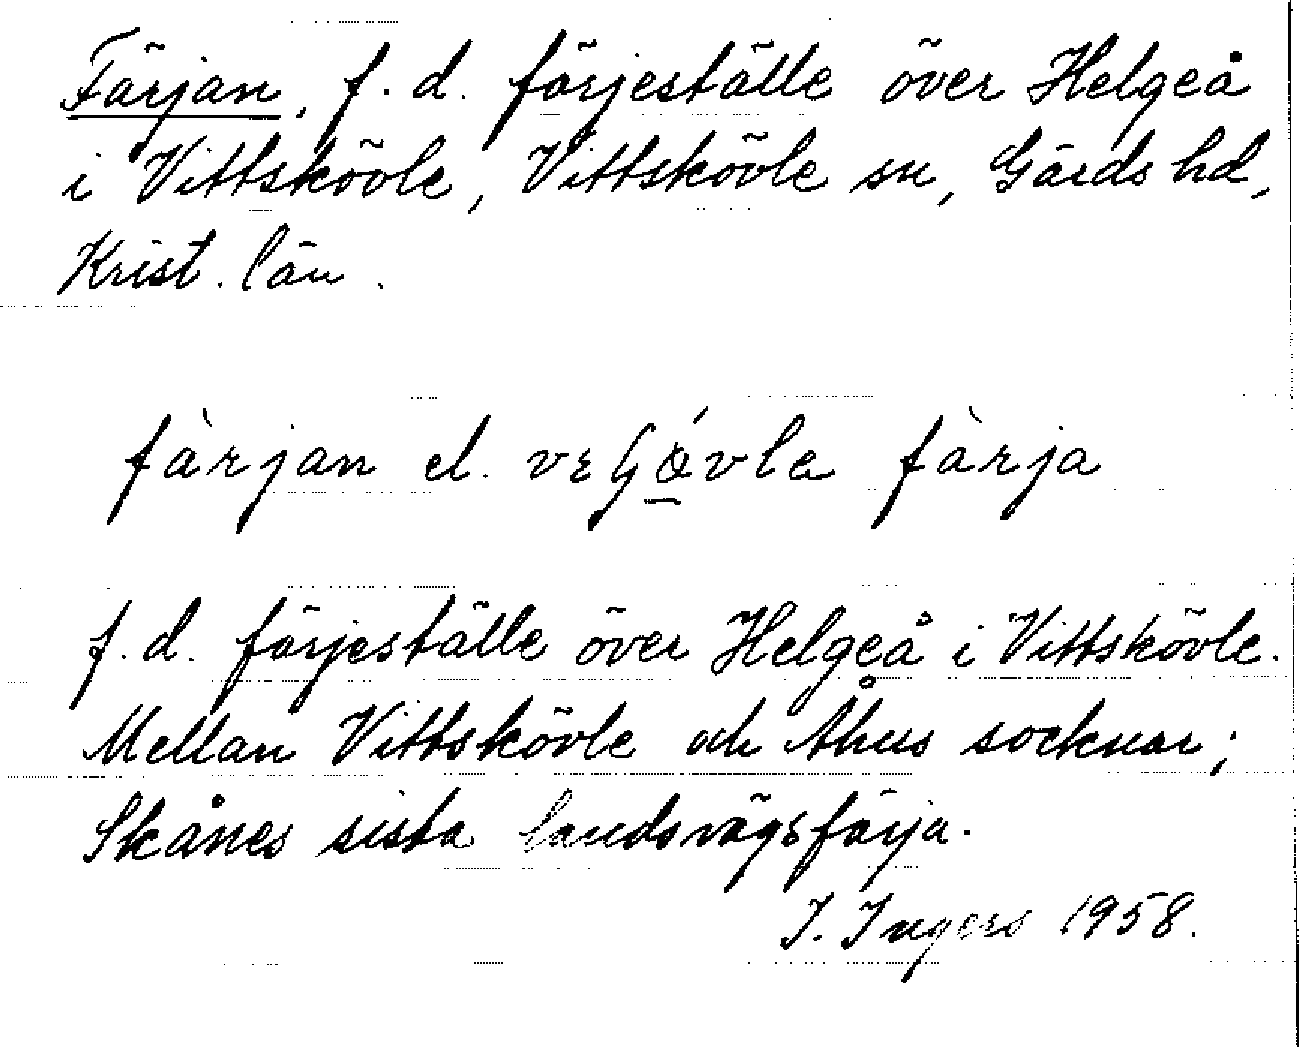 Färjan, f. d. färjeställe över Helgeå
i Vittskövle, Vittskövle sn, Gärds hd,
Krist. län.
fàrjan el. vɛGǿvla fàrja
f. d. färjeställe över Helgeå i Vittskövle.
Mellan Vittskövle och Åhus socknar;
Skånes sista landsvägsfärja.
I. Ingers 1958.